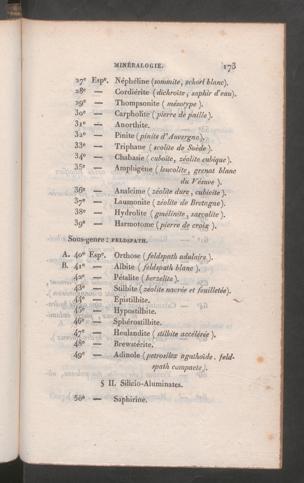 MINÉRALOGIE. 173
27e Espe. Néphéline (sommite, schorl blanc).
28e — Cordiérite (dichroïte, saphir d'eau).
29e — Thompsonite (mésotype).
30e — Carpholite (pierre de paille).
31e — Anorthite.
32e — Pinite (pinite d'Auvergne).
33e — Triphane (scolite de Suède).
34e — Chabasie (cuboïte, zéolite cubique).
35e — Amphigène (leucolite, grenat blanc
du Vésuve).
36e — Analcime (zéolite dure, cubicite).
37e — Laumonite (zéolite de Bretagne).
38e — Hydrolite (gmélinite, sarcolite).
39e — Harmotome (pierre de croix).
Sous-genre : FELDSPATH.
A. 40e Espe. Orthose (feldspath adulaire).
B. 41e — Albite (feldspath blanc).
42e — Pétalite (berzélite).
43e — Stilbite (zéolite nacrée et feuilletée).
44e — Epistilbite.
45e — Hypostilbite.
46e — Sphérostilbite.
47e — Heulandite (stilbite accélérée).
48e — Brewstérite.
49e — Adinole (petrosilex agathoïde, feld-
spath compacte).
§ II. Silicio-Aluminates.
50e — Saphirine.